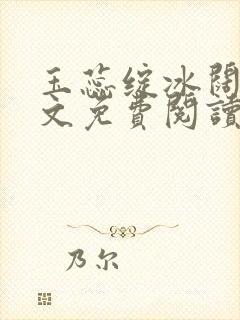 玉蕊绽冰阔
文免費閱讀
乃尔